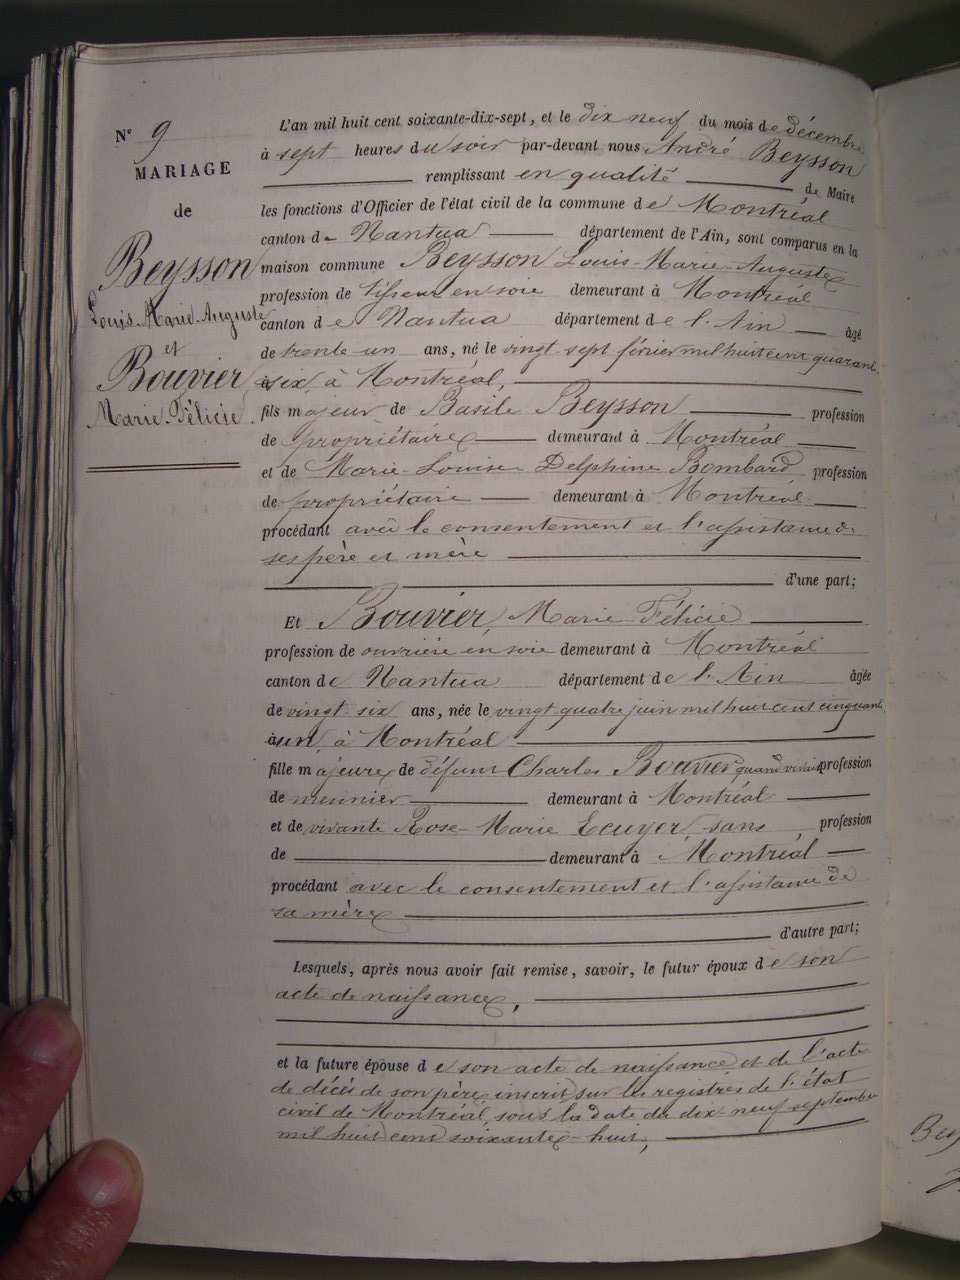 N° 9
MARIAGE
de
Beysson
Louis-Marie-Auguste
et
Bouvier
Marie-Félicie.
L'an mil huit cent soixante-dix-sept, et le dix neuf du mois de décembre
à sept heures du soir par-devant nous André Beysson
remplissant en qualité de Maire
les fonctions d'Officier de l'état civil de la commune de Montréal
canton de Nantua département de l'Ain, sont comparus en la
maison commune Beysson Louis-Marie-Auguste
profession de tisseur en soie demeurant à Montréal
canton de Nantua département de l'Ain âgé
de trente un ans, né le vingt sept février mil huit cent quarant
six, à Montréal,
fils majeur de Basile Beysson profession
de propriétaire demeurant à Montréal
et de Marie-Louise Delphine Bombard profession
de propriétaire demeurant à Montréal
procédant avec le consentement et l'assistance de
ses père et mère
d'une part;
Et Bouvier, Marie-Félicie
profession de ouvrière en soie demeurant à Montréal
canton de Nantua département de l'Ain âgée
de vingt-six ans, née le vingt quatre juin mil huit cent cinquante
à Montréal
fille majeure de défunt Charles Bouvier quand vivait profession
de meunier demeurant à Montréal
et de vivante Rose-Marie Ecuyer, sans profession
de demeurant à Montréal
procédant avec le consentement et l'assistance de
sa mère
d'autre part;
Lesquels, après nous avoir fait remise, savoir, le futur époux de son
acte de naissance,
et la future épouse de son acte de naissance et de l'acte
de décès de son père inscrit sur les registres de l'état
civil de Montréal, sous la date du dix-neuf septembre
mil huit cent soixante-huit,